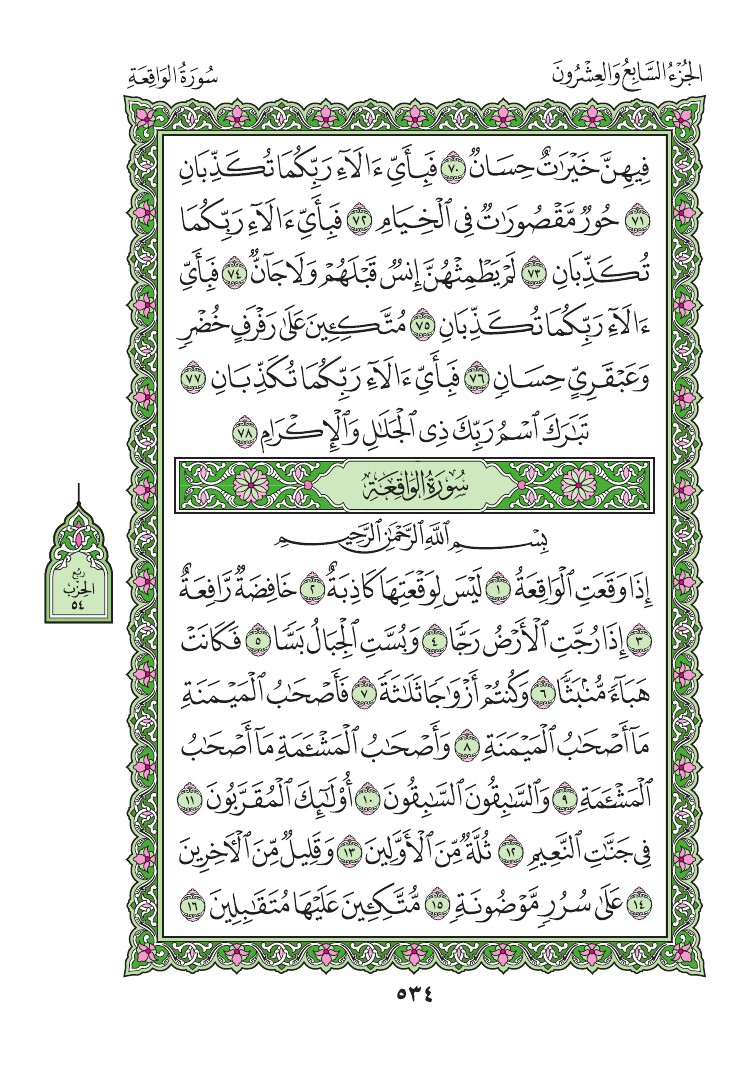 الجُزْءُ السَّابِعُ وَالعِشْرُونَ
سُورَةُ الوَاقِعَةِ
فِيهِنَّ خَيْرَٰتٌ حِسَانٌ ٧٠ فَبِأَيِّ ءَالَآءِ رَبِّكُمَا تُكَذِّبَانِ
٧١ حُورٌ مَّقْصُورَٰتٌ فِي ٱلْخِيَامِ ٧٢ فَبِأَيِّ ءَالَآءِ رَبِّكُمَا
تُكَذِّبَانِ ٧٣ لَمْ يَطْمِثْهُنَّ إِنسٌ قَبْلَهُمْ وَلَا جَآنٌّ ٧٤ فَبِأَيِّ
ءَالَآءِ رَبِّكُمَا تُكَذِّبَانِ ٧٥ مُتَّكِـِٔينَ عَلَىٰ رَفْرَفٍ خُضْرٍ
وَعَبْقَرِيٍّ حِسَانٍ ٧٦ فَبِأَيِّ ءَالَآءِ رَبِّكُمَا تُكَذِّبَانِ ٧٧
تَبَٰرَكَ ٱسْمُ رَبِّكَ ذِي ٱلْجَلَٰلِ وَٱلْإِكْرَامِ ٧٨
سُورَةُ الوَاقِعَةِ
بِسْمِ ٱللَّهِ ٱلرَّحْمَٰنِ ٱلرَّحِيمِ
إِذَا وَقَعَتِ ٱلْوَاقِعَةُ ١ لَيْسَ لِوَقْعَتِهَا كَاذِبَةٌ ٢ خَافِضَةٌ رَّافِعَةٌ
٣ إِذَا رُجَّتِ ٱلْأَرْضُ رَجًّا ٤ وَبُسَّتِ ٱلْجِبَالُ بَسًّا ٥ فَكَانَتْ
هَبَآءً مُّنۢبَثًّا ٦ وَكُنتُمْ أَزْوَٰجًا ثَلَٰثَةً ٧ فَأَصْحَٰبُ ٱلْمَيْمَنَةِ
مَآ أَصْحَٰبُ ٱلْمَيْمَنَةِ ٨ وَأَصْحَٰبُ ٱلْمَشْـَٔمَةِ مَآ أَصْحَٰبُ
ٱلْمَشْـَٔمَةِ ٩ وَٱلسَّٰبِقُونَ ٱلسَّٰبِقُونَ ١٠ أُوْلَٰٓئِكَ ٱلْمُقَرَّبُونَ ١١
فِي جَنَّٰتِ ٱلنَّعِيمِ ١٢ ثُلَّةٌ مِّنَ ٱلْأَوَّلِينَ ١٣ وَقَلِيلٌ مِّنَ ٱلْأٓخِرِينَ
١٤ عَلَىٰ سُرُرٍ مَّوْضُونَةٍ ١٥ مُّتَّكِـِٔينَ عَلَيْهَا مُتَقَٰبِلِينَ ١٦
ربع
الحزب
٥٤
٥٣٤